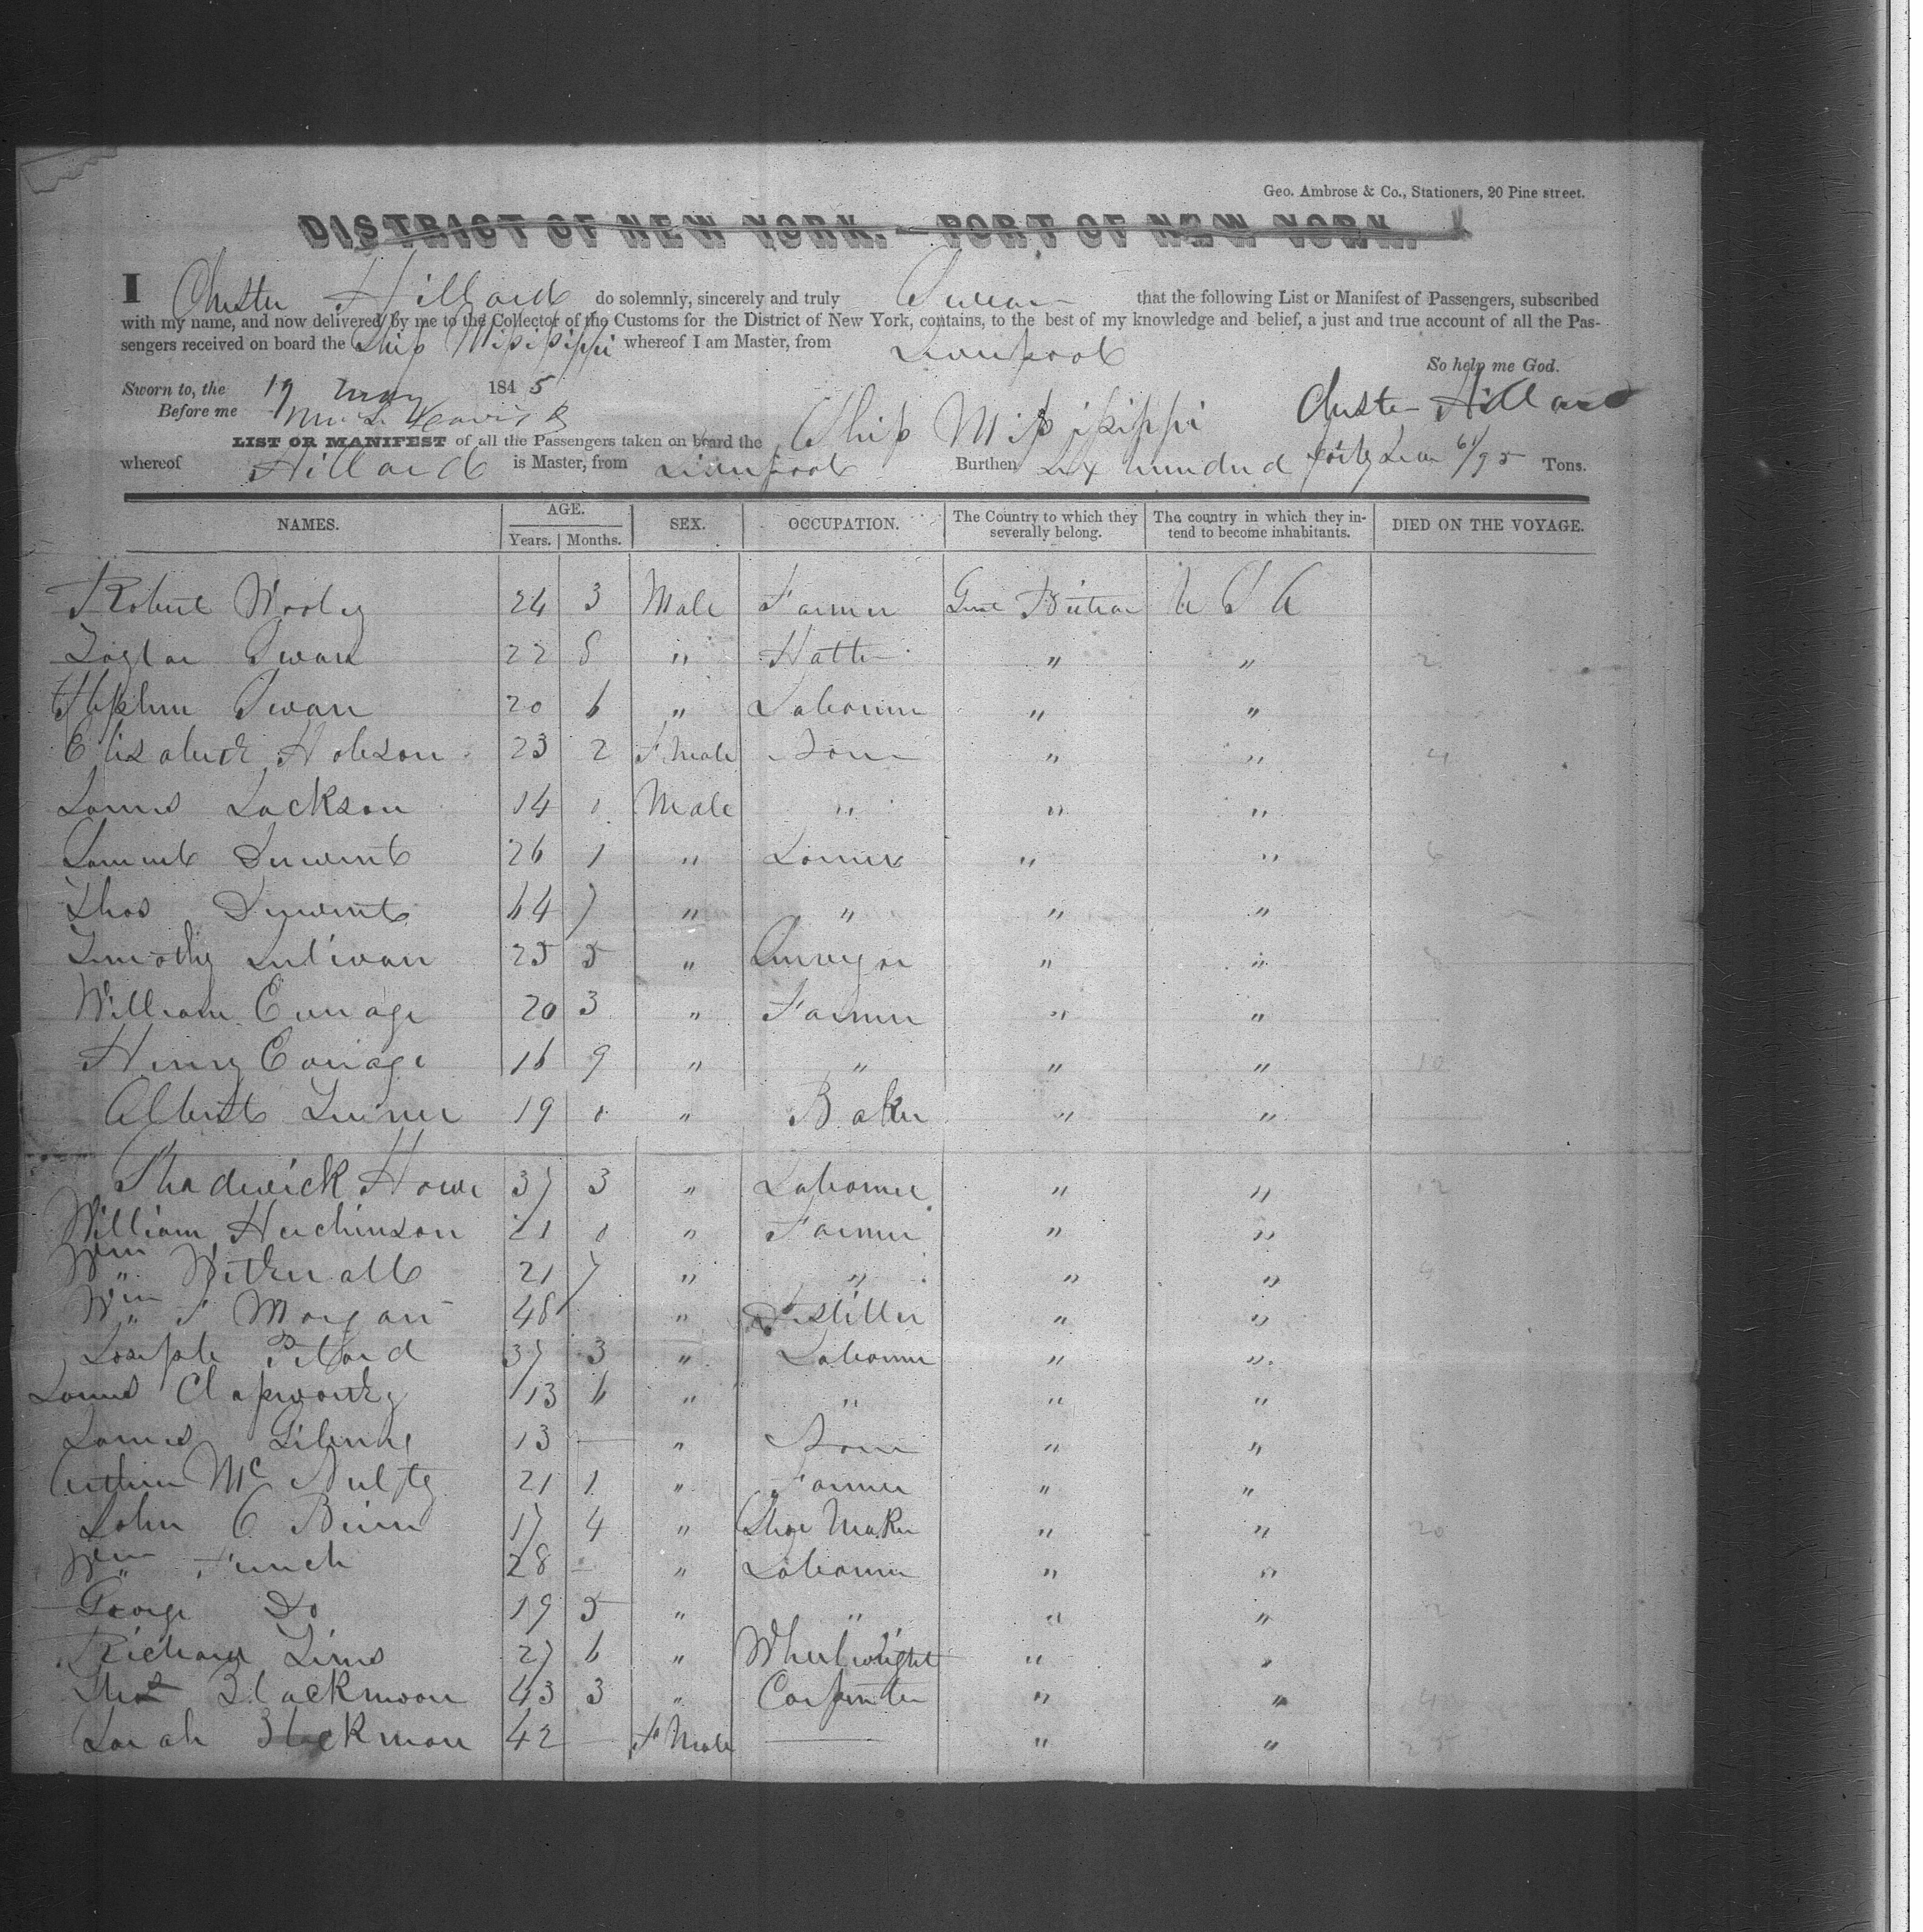 Geo. Ambrose & Co., Stationers, 20 Pine street.
DISTRICT OF NEW YORK.—PORT OF NEW YORK.
I Chester Hillard do solemnly, sincerely and truly Swear that the following List or Manifest of Passengers, subscribed
with my name, and now delivered by me to the Collector of the Customs for the District of New York, contains, to the best of my knowledge and belief, a just and true account of all the Pas-
sengers received on board the Ship Missisippi whereof I am Master, from Liverpool
So help me God.
Sworn to, the 19 May 1845
Before me
Chester Hillard
LIST OR MANIFEST of all the Passengers taken on board the Ship Missisippi
whereof Hillard is Master, from Liverpool Burthen Six hundred forty 61/95 Tons.
NAMES. AGE. SEX. OCCUPATION. The Country to which they severally belong. The country in which they intend to become inhabitants. DIED ON THE VOYAGE.
Years. Months.
Robert Wooley 24 3 Male Farmer Great Britain U S A
Taylor Swan 22 8 " Hatter " " 2
Stephen Swan 20 6 " Labourer " "
Elizabeth Hobson 23 2 F Male None " " 4
James Jackson 14 1 Male " " "
Samuel 26 1 " " " 6
Thos 44 7 " " " "
Timothy Sulivan 25 5 " Surveyor " " 8
William 20 3 " Farmer " "
Henry 16 9 " " " " 10
Albert Turner 19 1 " Baker " "
Shadwick Howe 37 3 " Labourer " " 12
William Hutchinson 21 1 " Farmer " "
Wm " Witherall 21 7 " " " "
Wm " F Morgan 48 " Distiller " "
Joseph 37 3 " Labourer " "
James Clapworthy 13 6 " " " "
James 13 — " None " "
Arthur Mc Nulty 21 1 " Farmer " "
John C 17 4 " Shoe Maker " " 20
Wm " 28 — " Labourer " "
George Do 19 5 " " " " 2
Richard Sims 27 6 " Wheelwright " "
Thos Blackmoon 43 3 " Carpenter " " 4
Sarah Blackmon 42 — F Male — " "